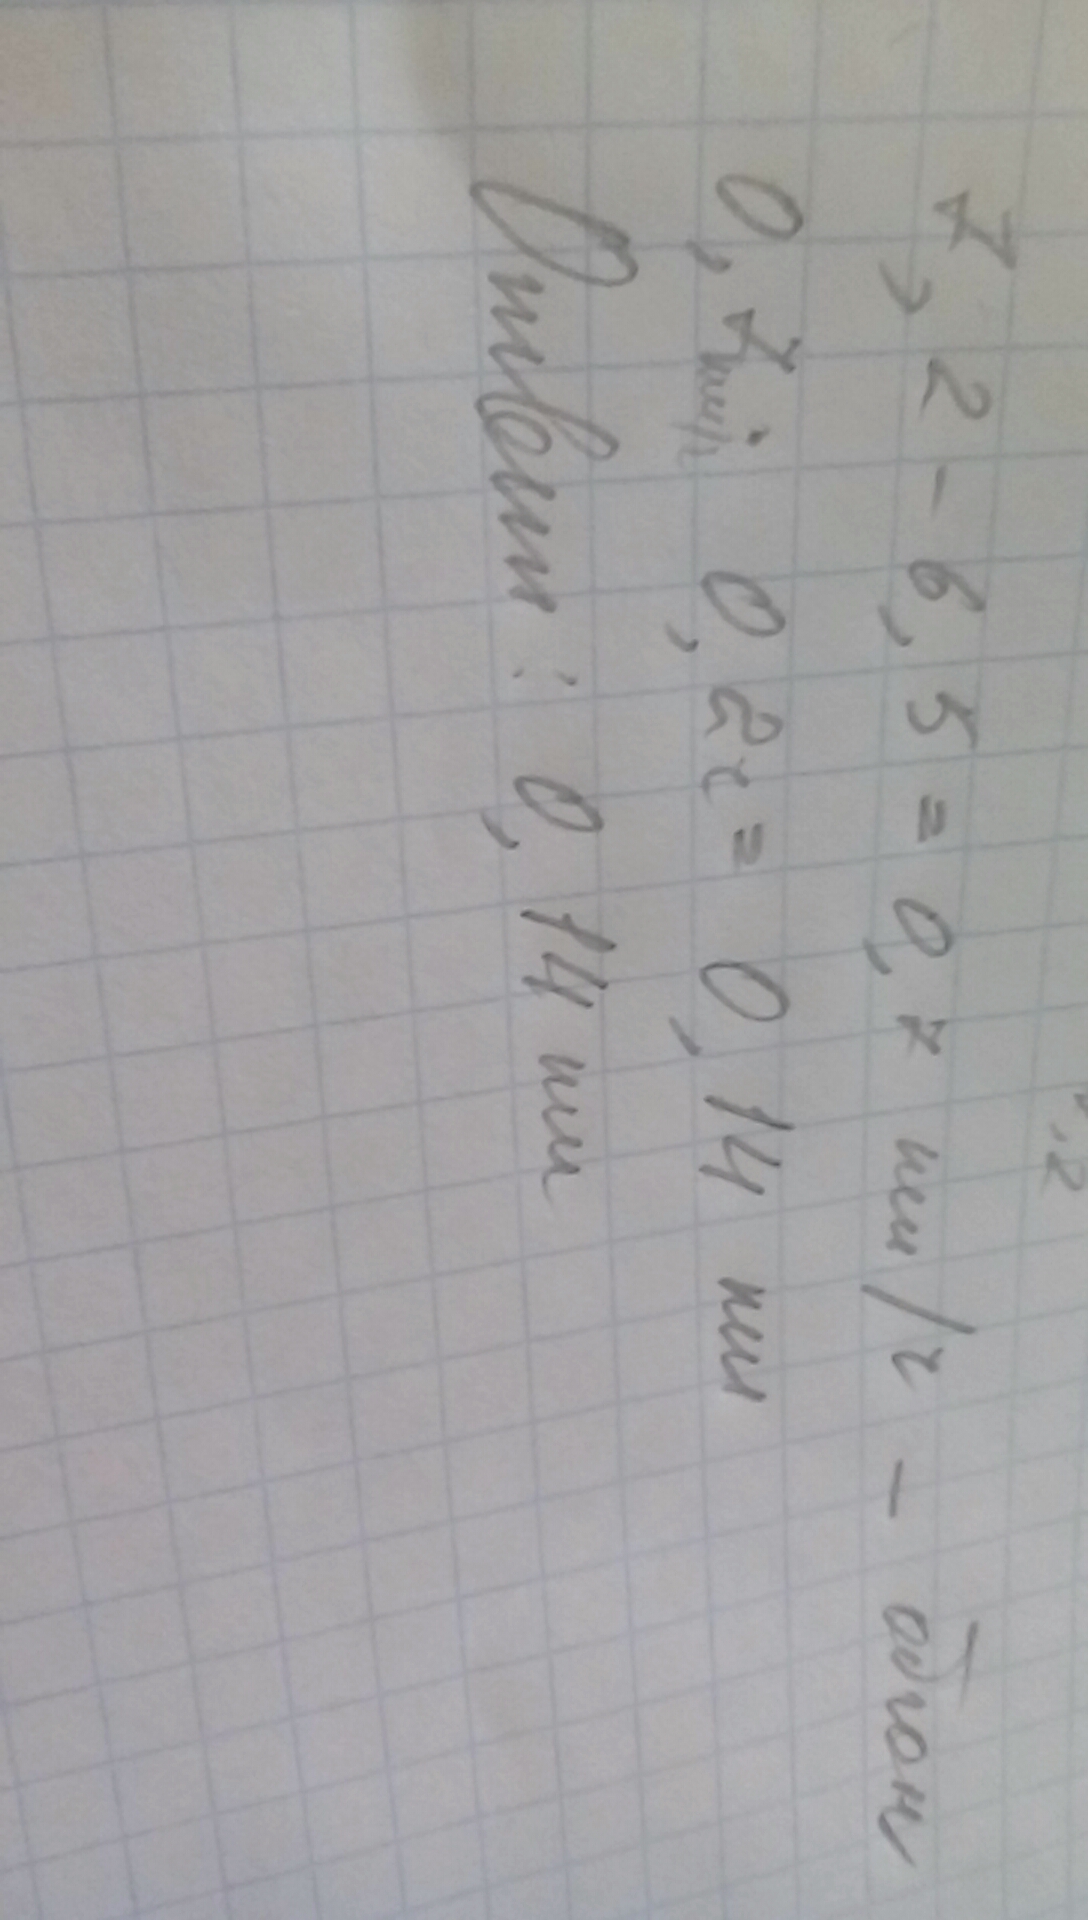 0,2
7,2 - 6,5 = 0,7 км/ч - обгон
0,7км/ч · 0,2ч = 0,14 км
Ответ : 0,14 км